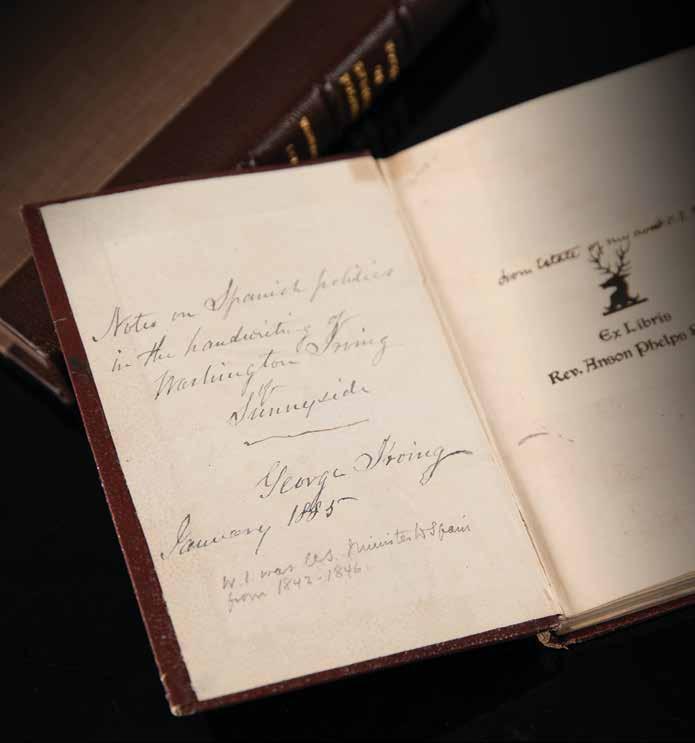 Notes on Spanish politics
in the handwriting of
Washington Irving
of
Sunnyside
George Irving
January 1885
W.I. was U.S. Minister to Spain
from 1842-1846.
from Estate of my aunt
Ex Libris
Rev. Anson Phelps